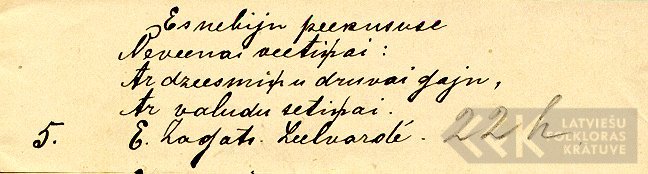 Es nebiju peekususe
Neveenai veetiņai:
Ar dzeesmiņu druvai gaju,
Ar valudu setiņai.
5. E. Zagats. Leelvardé. 22 h
LATVIEŠU
FOLKLORAS
KRĀTUVE